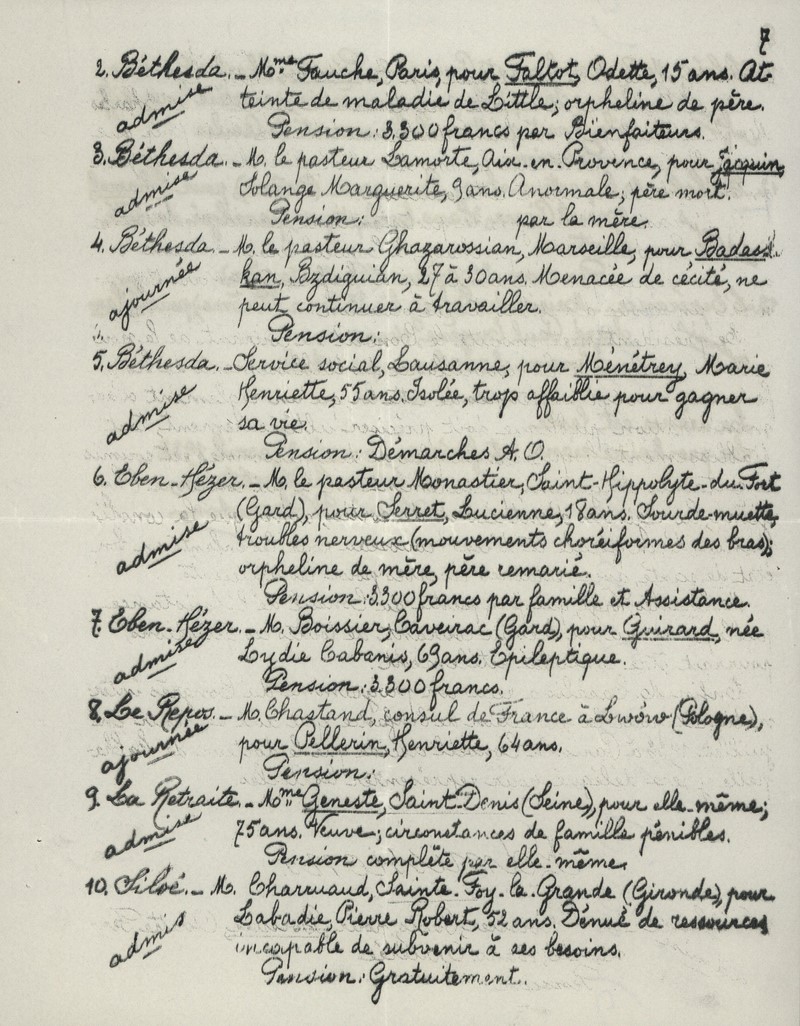 7
2. Béthesda. _ Mme Fauche, Paris, pour Faltot, Odette, 15 ans. At-
admise
teinte de maladie de Little; orpheline de père.
Pension: 3.300 francs par Bienfaiteurs.
3. Béthesda. _ M. le pasteur Lamorte, Aix-en-Provence, pour Jacquin,
admise
Solange Marguerite, 9 ans. Anormale; père mort.
Pension: par la mère.
4. Béthesda _ M. le pasteur Ghazarossian, Marseille, pour Badassi-
ajournée
kan, Bzdiguian, 27 à 30 ans. Menacée de cécité, ne
peut continuer à travailler.
Pension:
5. Béthesda. _ Service social, Lausanne, pour Ménétrey, Marie
admise
Henriette, 55 ans. Isolée, trop affaiblie pour gagner
sa vie.
Pension: Démarches A. O.
6. Eben-Hézer. _ M. le pasteur Monastier, Saint-Hippolyte-du-Fort
(Gard), pour Serret, Lucienne, 18 ans. Sourde-muette,
admise
troubles nerveux (mouvements choréiformes des bras);
orpheline de mère, père remarié.
Pension: 3.300 francs par famille et Assistance.
7. Eben-Hézer. _ M. Boissier, Caveirac (Gard), pour Guirard, née
admise
Lydie Cabanis, 69 ans. Epileptique.
Pension: 3.300 francs.
8. Le Repos. _ M. Chastand, consul de France à Lwów (Pologne),
ajournée
pour Pellerin, Henriette, 64 ans.
Pension:
9. La Retraite. _ Mme Geneste, Saint-Denis (Seine), pour elle-même;
admise
75 ans. Veuve; circonstances de famille pénibles.
Pension complète par elle-même.
10. Siloé. _ M. Charruaud, Sainte-Foy-la-Grande (Gironde), pour
admis
Labadie, Pierre Robert, 52 ans. Dénué de ressources
incapable de subvenir à ses besoins.
Pension: Gratuitement.